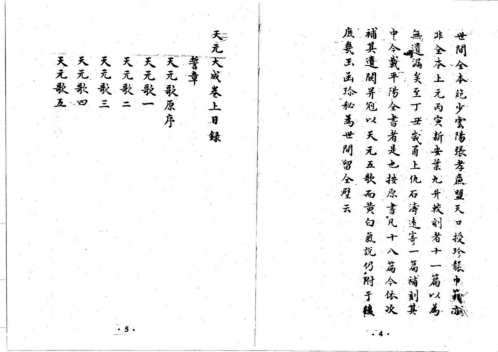 世間全本絕少雲陽張孝廉盟天口授珍鈔巾藏亦
非全本上元丙寅新安葉九升授刻者十一篇以為
無遺漏矣至丁丑歲甬上仇石濤遠寄一篇補刻其
中今載平陽全書者是也按原書凡十八篇今依次
補其遺闕弁冠以天元五歌而黃白氣說仍附于後
庶幾玉函珍秘為世間留全璧云
·4·
天元大成卷上目錄
誓章
天元歌原序
天元歌一
天元歌二
天元歌三
天元歌四
天元歌五
·5·